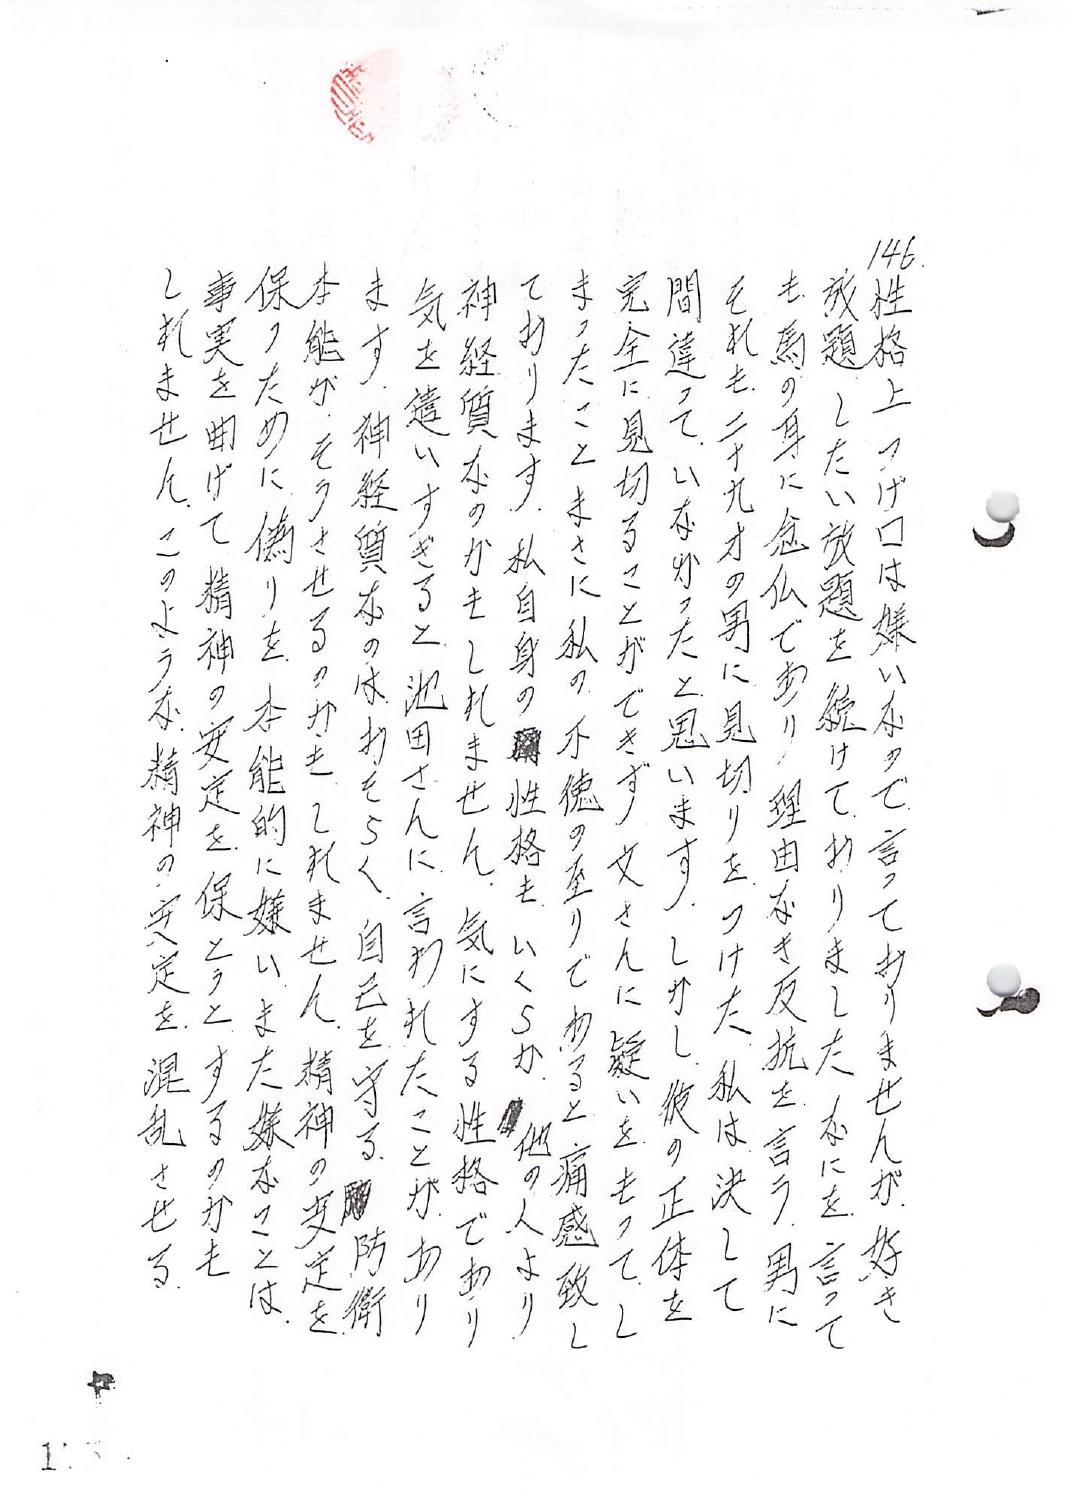 146.
性格上つげ口は嫌いなので、言っておりませんが、好き
放題したい放題を続けておりました。なにを言って
も、馬の耳に念仏であり、理由なき反抗を言う、男に
それも、二十九才の男に見切りをつけた、私は決して
間違って、いなかったと思います。しかし、彼の正体を
完全に見切ることができず、文さんに疑いをもって、し
まったこと、まさに私の不徳の至りであると痛感致し
ております。私自身の性格も、いくらか、他の人より
神経質なのかもしれません。気にする性格であり
気を遣いすぎると、池田さんに言われたことが、あり
ます。神経質なのは、おそらく、自己を守る防衛
本能が、そうさせるのかも、しれません。精神の安定を
保つために、偽りを、本能的に嫌い、また嫌なことは、
事実を曲げて精神の安定を、保とうとするのかも
しれません。このような、精神の安定を、混乱させる、